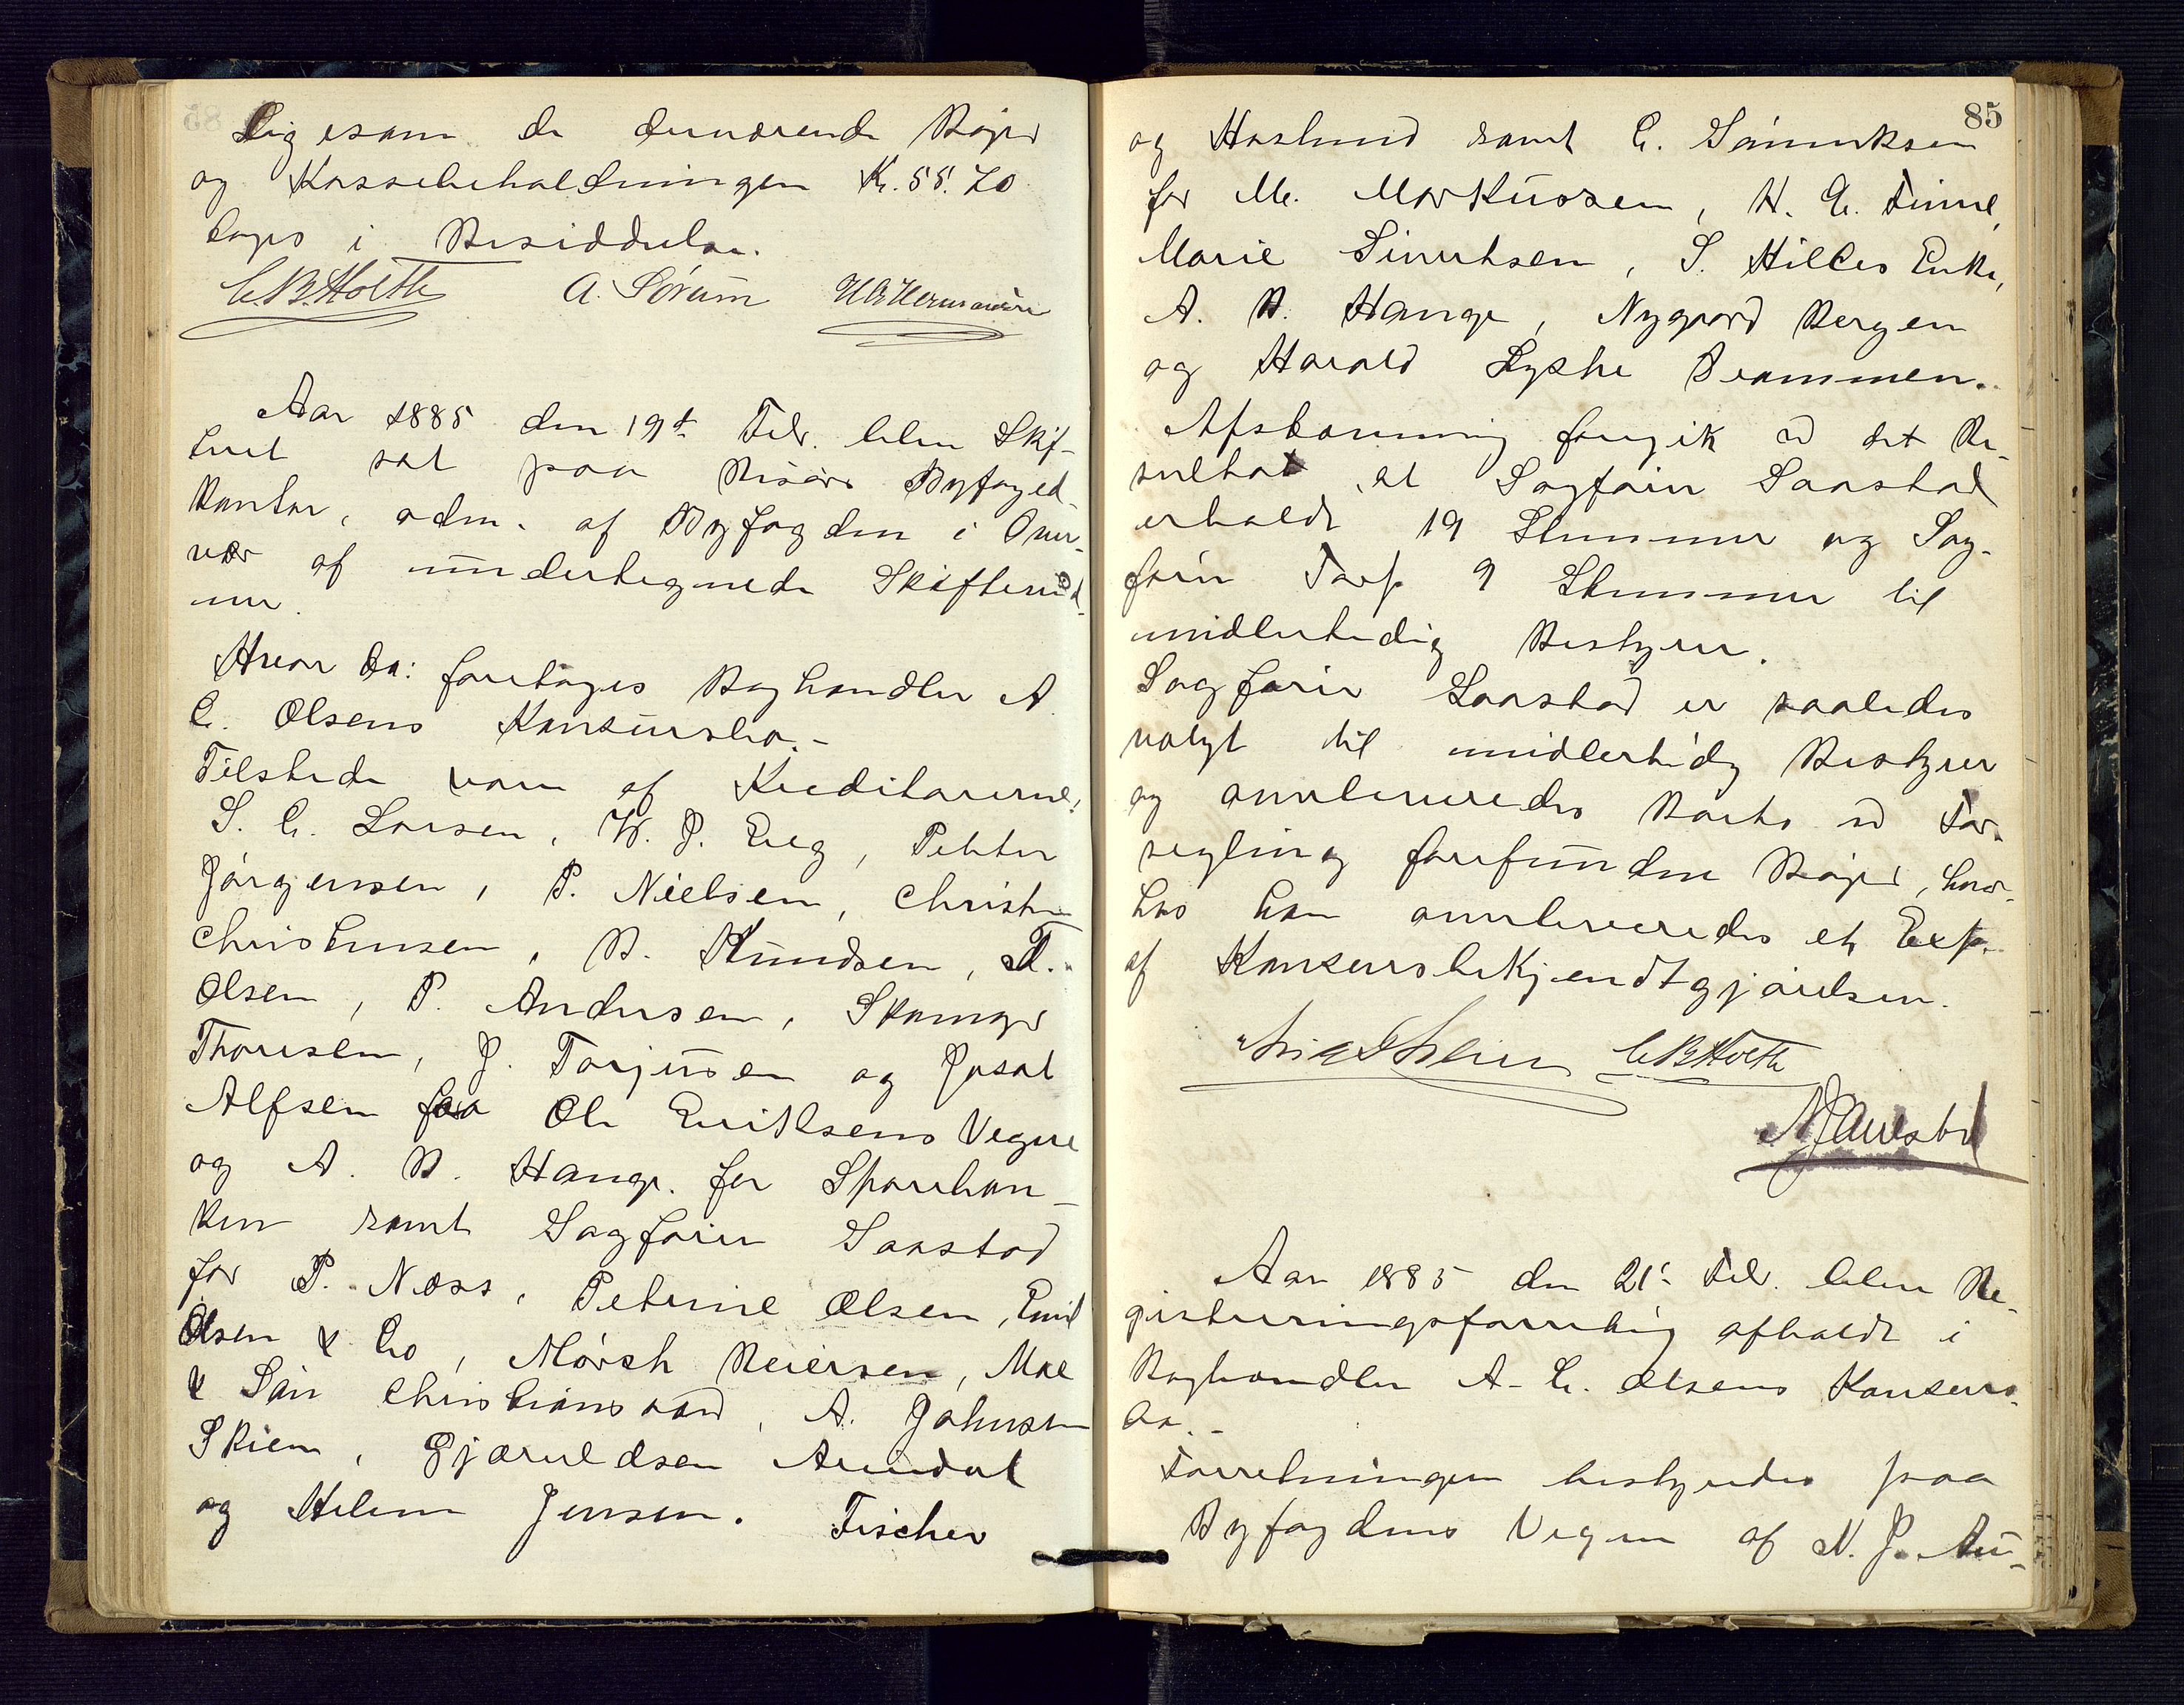 Ligesom de derværende Bøger
og Kassebeholdningen Kr. 55.70
toges i Besiddelse.
C.B.Holth A. Sørum
Aar 1885 den 19d Febr. blev Skif-
teret sat paa Risørs Byfoged-
kontor, adm. af Byfogden i Over-
vær af undertegnede Skiftevid-
ner.
Hvor da: foretoges Boghandler A
C. Olsens Konkursbo.-
Tilstede vare af Kreditorerne,
S. C. Larsen, W. J. Eeg, Petter
Jørgensen, P. Nielsen, Christen
Christensen, B. Knudsen, T.
Olsen, P. Andersen, Skomgr
Thorsen, J. Torjusen og Josat
Alfsen for Ole Eriksens Vegne
og A. B. Hange. for Spareban-
ken samt Sagfører Saastad
for P. Næss, Peterine Olsen, Emil
Olsen & Co, Mørch Reiersen, Moe
& Søn Christianssand, A. Johnsen
Skien, Gjæruldsen Arendal
og Helene Jensen. Fischer
85
og Haslund samt C. Sømmksen
for M. Markussen, H. C. Finne,
Marie Sivertsen, S. Hilles Enke,
A. B. Hange, Nygaard Bergen
og Harald Lyche Drammen.
Afstemning foregik ved det Re-
sultat, at Sagfører Saastad
erholdt 19 Stemmer og Sag-
fører Tarp 9 Stemmer til
midlertidig Bestyrer.
Sagfører Saastad er saaledes
valgt til midlertidig Bestyrer
og overleveredes Boets ved For-
segling forefundne Bøger, hvor-
hos ham overleveredes et Exp.
af Konkursbekjendtgjørelsen.
C B Holth
Aar 1885 den 21d Febr. blev Re-
gistreringsforretning afholdt i
Boghandler A. C. Olsens Konkurs-
bo.-
Forretningen bestyredes paa
Byfogdens Vegne af N. J. Au-